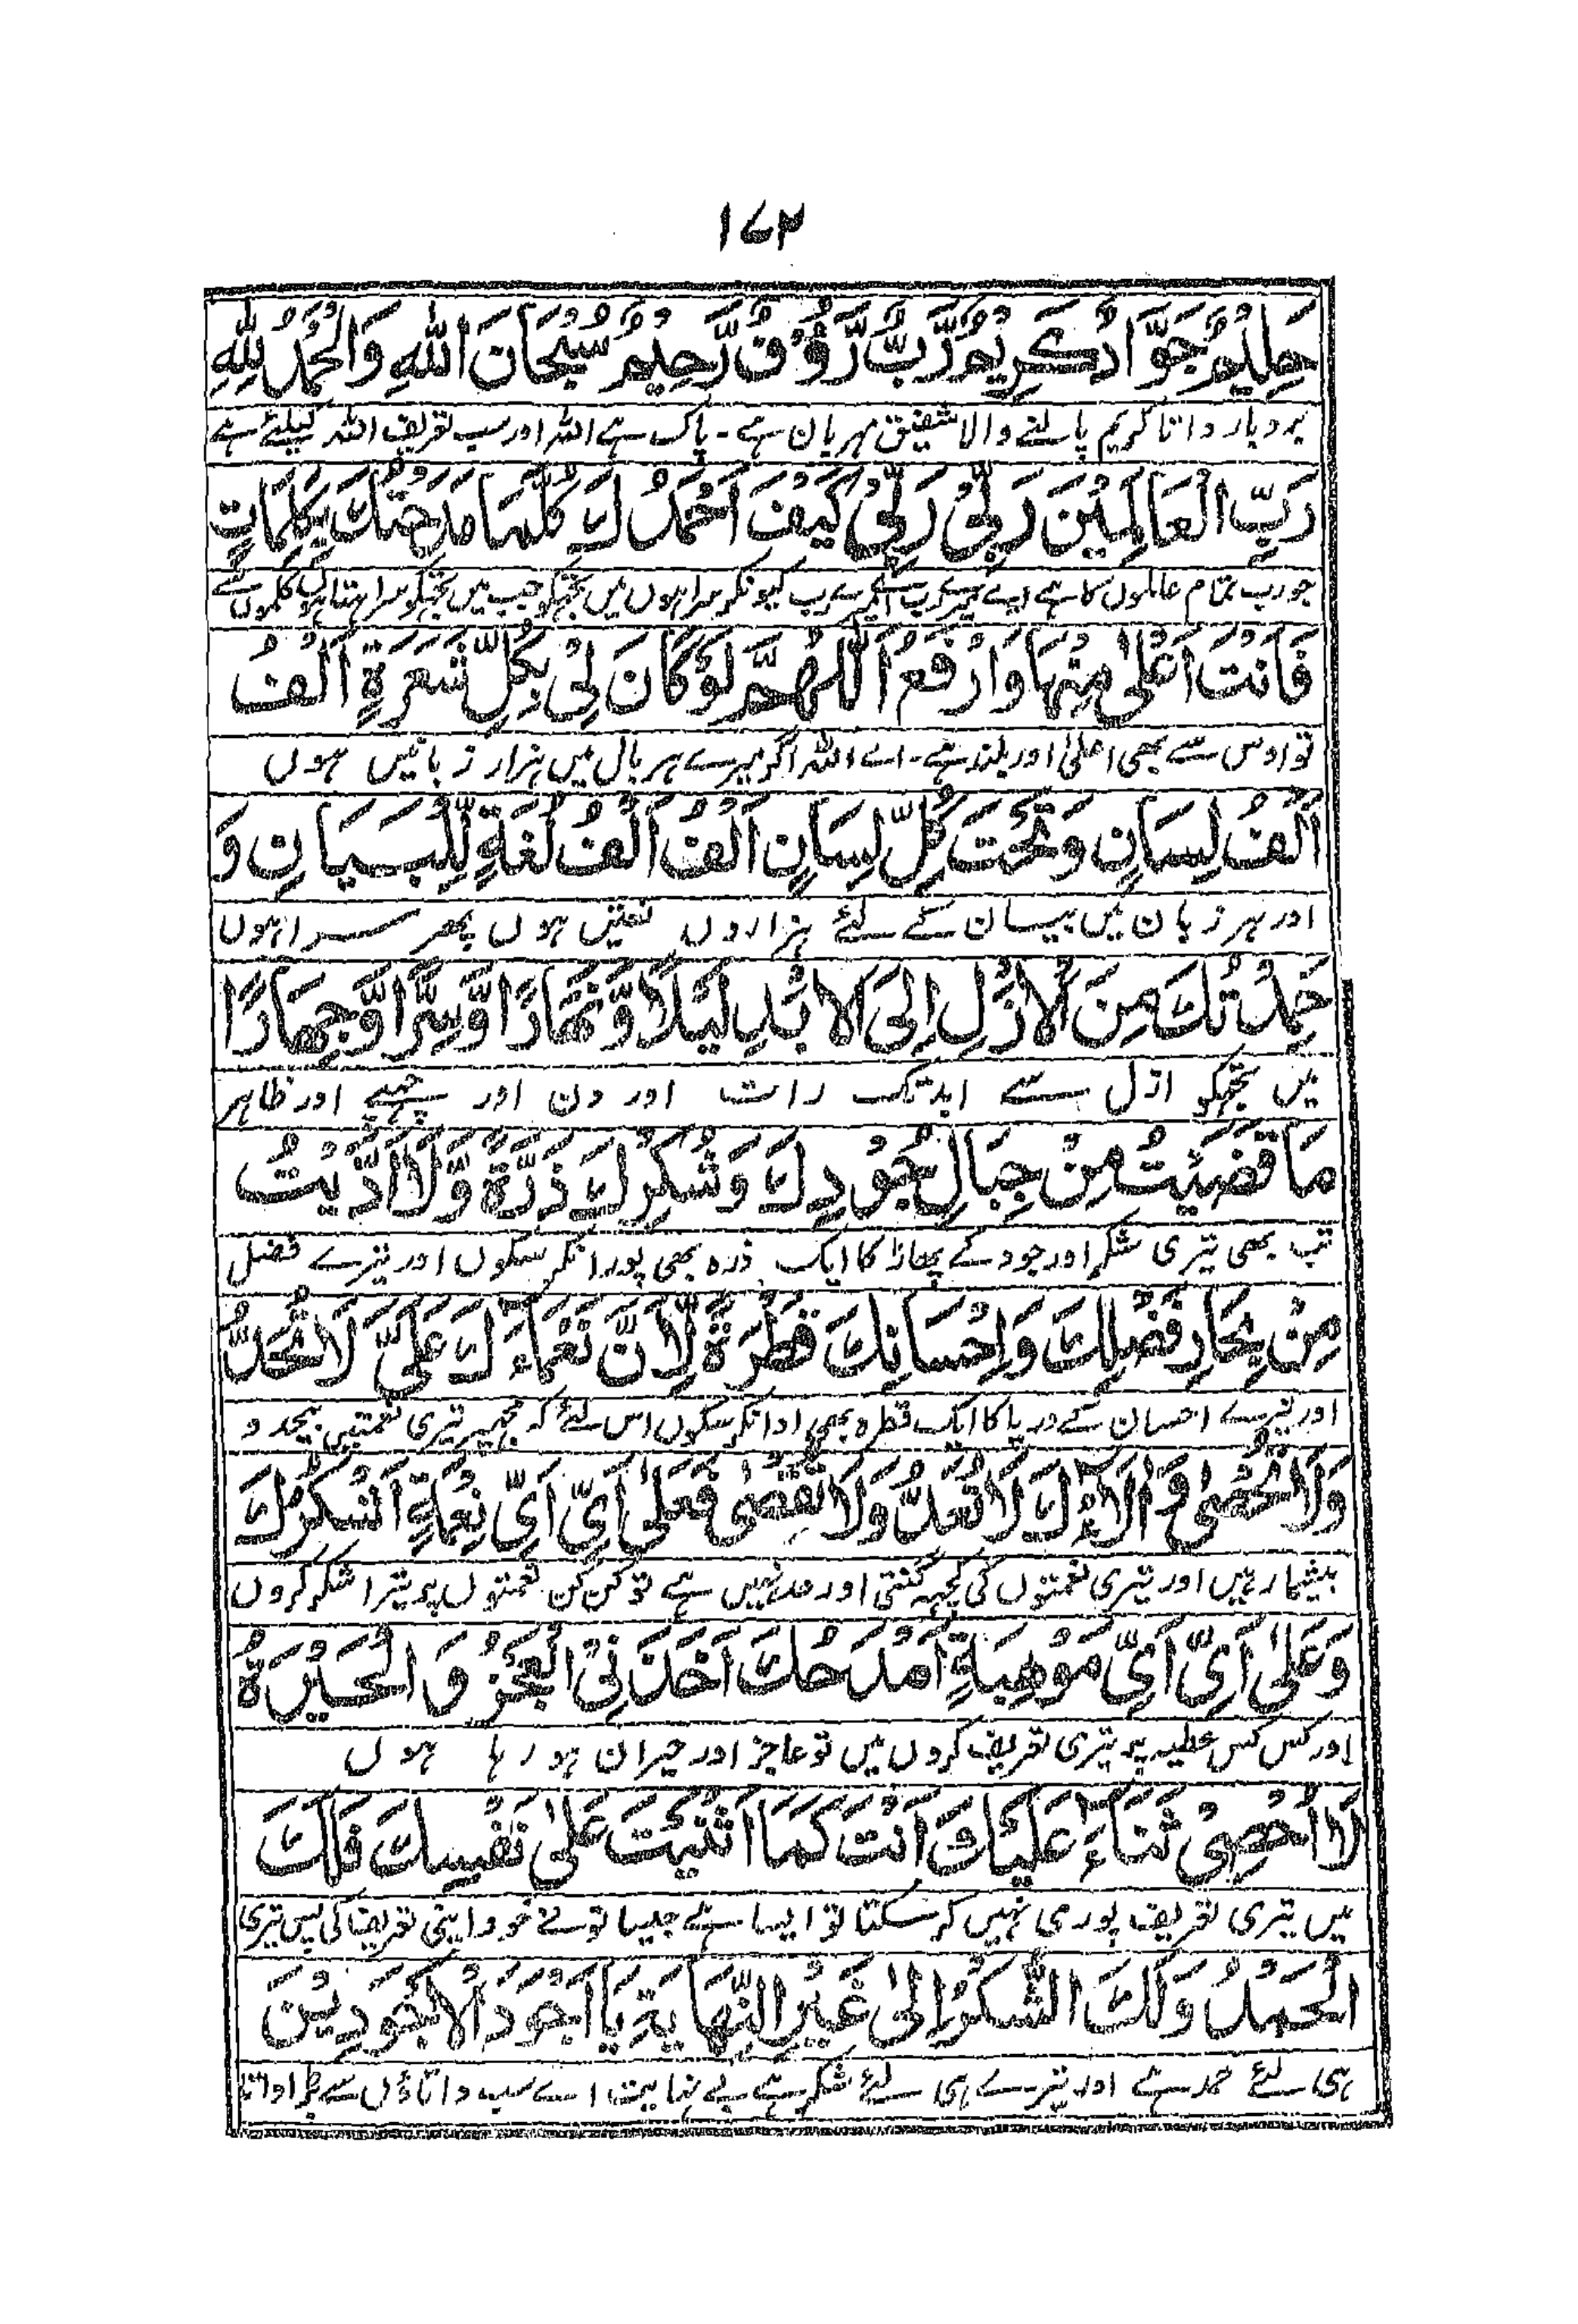 ۱۷۳
حَلِیْمٌ جَوَّادٌ کَرِیْمٌ رَّبٌّ رَّؤُفٌ رَّحِیْمٌ سُبْحَانَ اللّٰہِ وَالْحَمْدُ لِلّٰہِ
بردبار داتا کریم پالنے والا شفیق مہربان ہے۔ پاک ہے اللہ اور سب تعریف اللہ کیلئے ہے
رَبِّ الْعَالَمِیْنَ رَبِّیْ رَبِّیْ کَیْفَ اَحْمَدُكَ کُلَّمَا مَدَحْتُكَ بِکَلِمَاتٍ
جو رب تمام عالموں کا ہے اے میرے رب اے میرے رب کیونکر سراہوں میں تجہکو جب میں تجہکو سراہتا ہوں کلموں سے
فَاَنْتَ اَعْلٰی مِنْہَا وَاَرْفَعُ اَللّٰہُمَّ لَوْ کَانَ لِیْ بِکُلِّ شَعْرَۃٍ اَلْفُ
تو اوس سے بھی اعلیٰ اور بلند ہے۔ اے اللہ اگر میرے ہر بال میں ہزار زبانیں ہوں
اَلْفِ لِسَانٍ وَتَحْتَ کُلِّ لِسَانٍ اَلْفُ اَلْفِ لُغَۃٍ لِّلْبَیَانِ وَ
اور ہر زبان میں بیان کے لئے ہزاروں لغتیں ہوں پھر سراہوں
خِدْمَتُكَ مِنَ الْاَزَلِ اِلَی الْاَبَدِ لَیْلًا وَّنَہَارًا وَّسِرًّا وَّجِہَارًا
میں تجہکو ازل سے ابد تک رات اور دن اور چھپے اور ظاہر
مَا قَضَیْتُ مِنْ جِبَالِ جُوْدِكَ وَشُکْرِكَ ذَرَّۃً وَّلَا اَدَّیْتُ
تب بھی تیری شکر اور جود کے پھاڑ کا ایک ذرہ بھی پورا نکر سکوں اور تیرے فضل
مِنْ بِحَارِ فَضْلِكَ وَاِحْسَانِكَ قَطْرَۃً لِاَنَّ نَعْمَاءَكَ عَلَیَّ لَا تُحَدُّ
اور تیرے احسان کے دریا کا ایک قطرہ بھی ادا نکر سکوں اس لئے کہ مجہپر تیری نعمتیں بیحد و
وَلَا تُحْصٰی وَاٰلَاءَكَ لَا تُعَدُّ وَلَا تُقْصٰی فَعَلٰی اَیِّ اَیِّ نِعْمَۃٍ اَشْکُرُكَ
بیشمار ہیں اور تیری نعمتوں کی کچہ گنتی اور حد نہیں ہے تو کن کن نعمتوں پر تیرا شکر کروں
وَعَلٰی اَیِّ اَیِّ مَوْہِبَۃٍ اَمْدَحُكَ اَخَذَنِیَ الْعَجْزُ وَ الْحَیْرَۃُ
اور کس کس عطیہ پر تیری تعریف کروں میں تو عاجز اور حیران ہو رہا ہوں
لَا اُحْصِیْ ثَنَاءً عَلَیْكَ اَنْتَ کَمَا اَثْنَیْتَ عَلٰی نَفْسِكَ فَلَكَ
میں تیری تعریف پوری نہیں کر سکتا تو ایسا ہے جیسا تونے خود اپنی تعریف کی پس تیری
الْحَمْدُ وَلَكَ الشُّکْرُ اِلٰی غَیْرِ النِّہَایَۃِ یَا اَجْوَدَ الْاَجْوَدِیْنَ
ہی لئے حمد ہے اور تیرے ہی لئے شکر ہے بے نہایت اے سب داتاؤں سے بڑا داتا